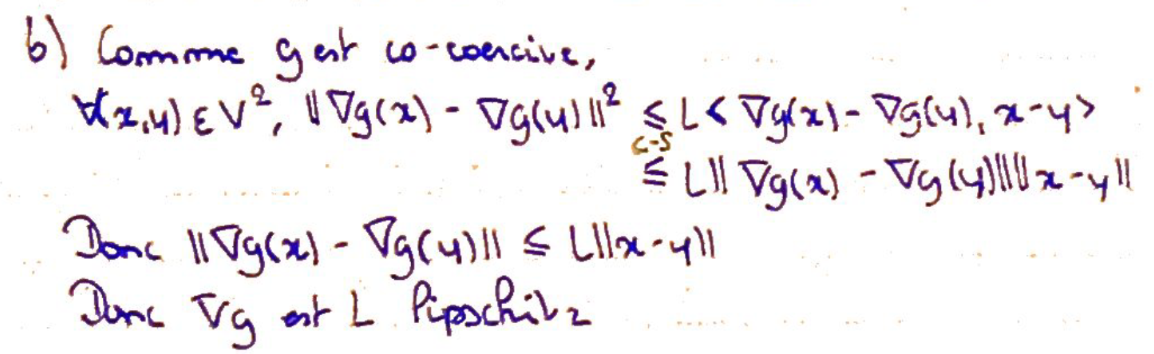 b) Comme g est co-coercive,
∀(x,y) ∈ V², ||∇g(x) - ∇g(y)||² ≤ L< ∇g(x) - ∇g(y), x-y>
C-S
≤ L|| ∇g(x) - ∇g(y)|| ||x-y||
Donc ||∇g(x) - ∇g(y)|| ≤ L||x-y||
Donc ∇g est L lipschitz